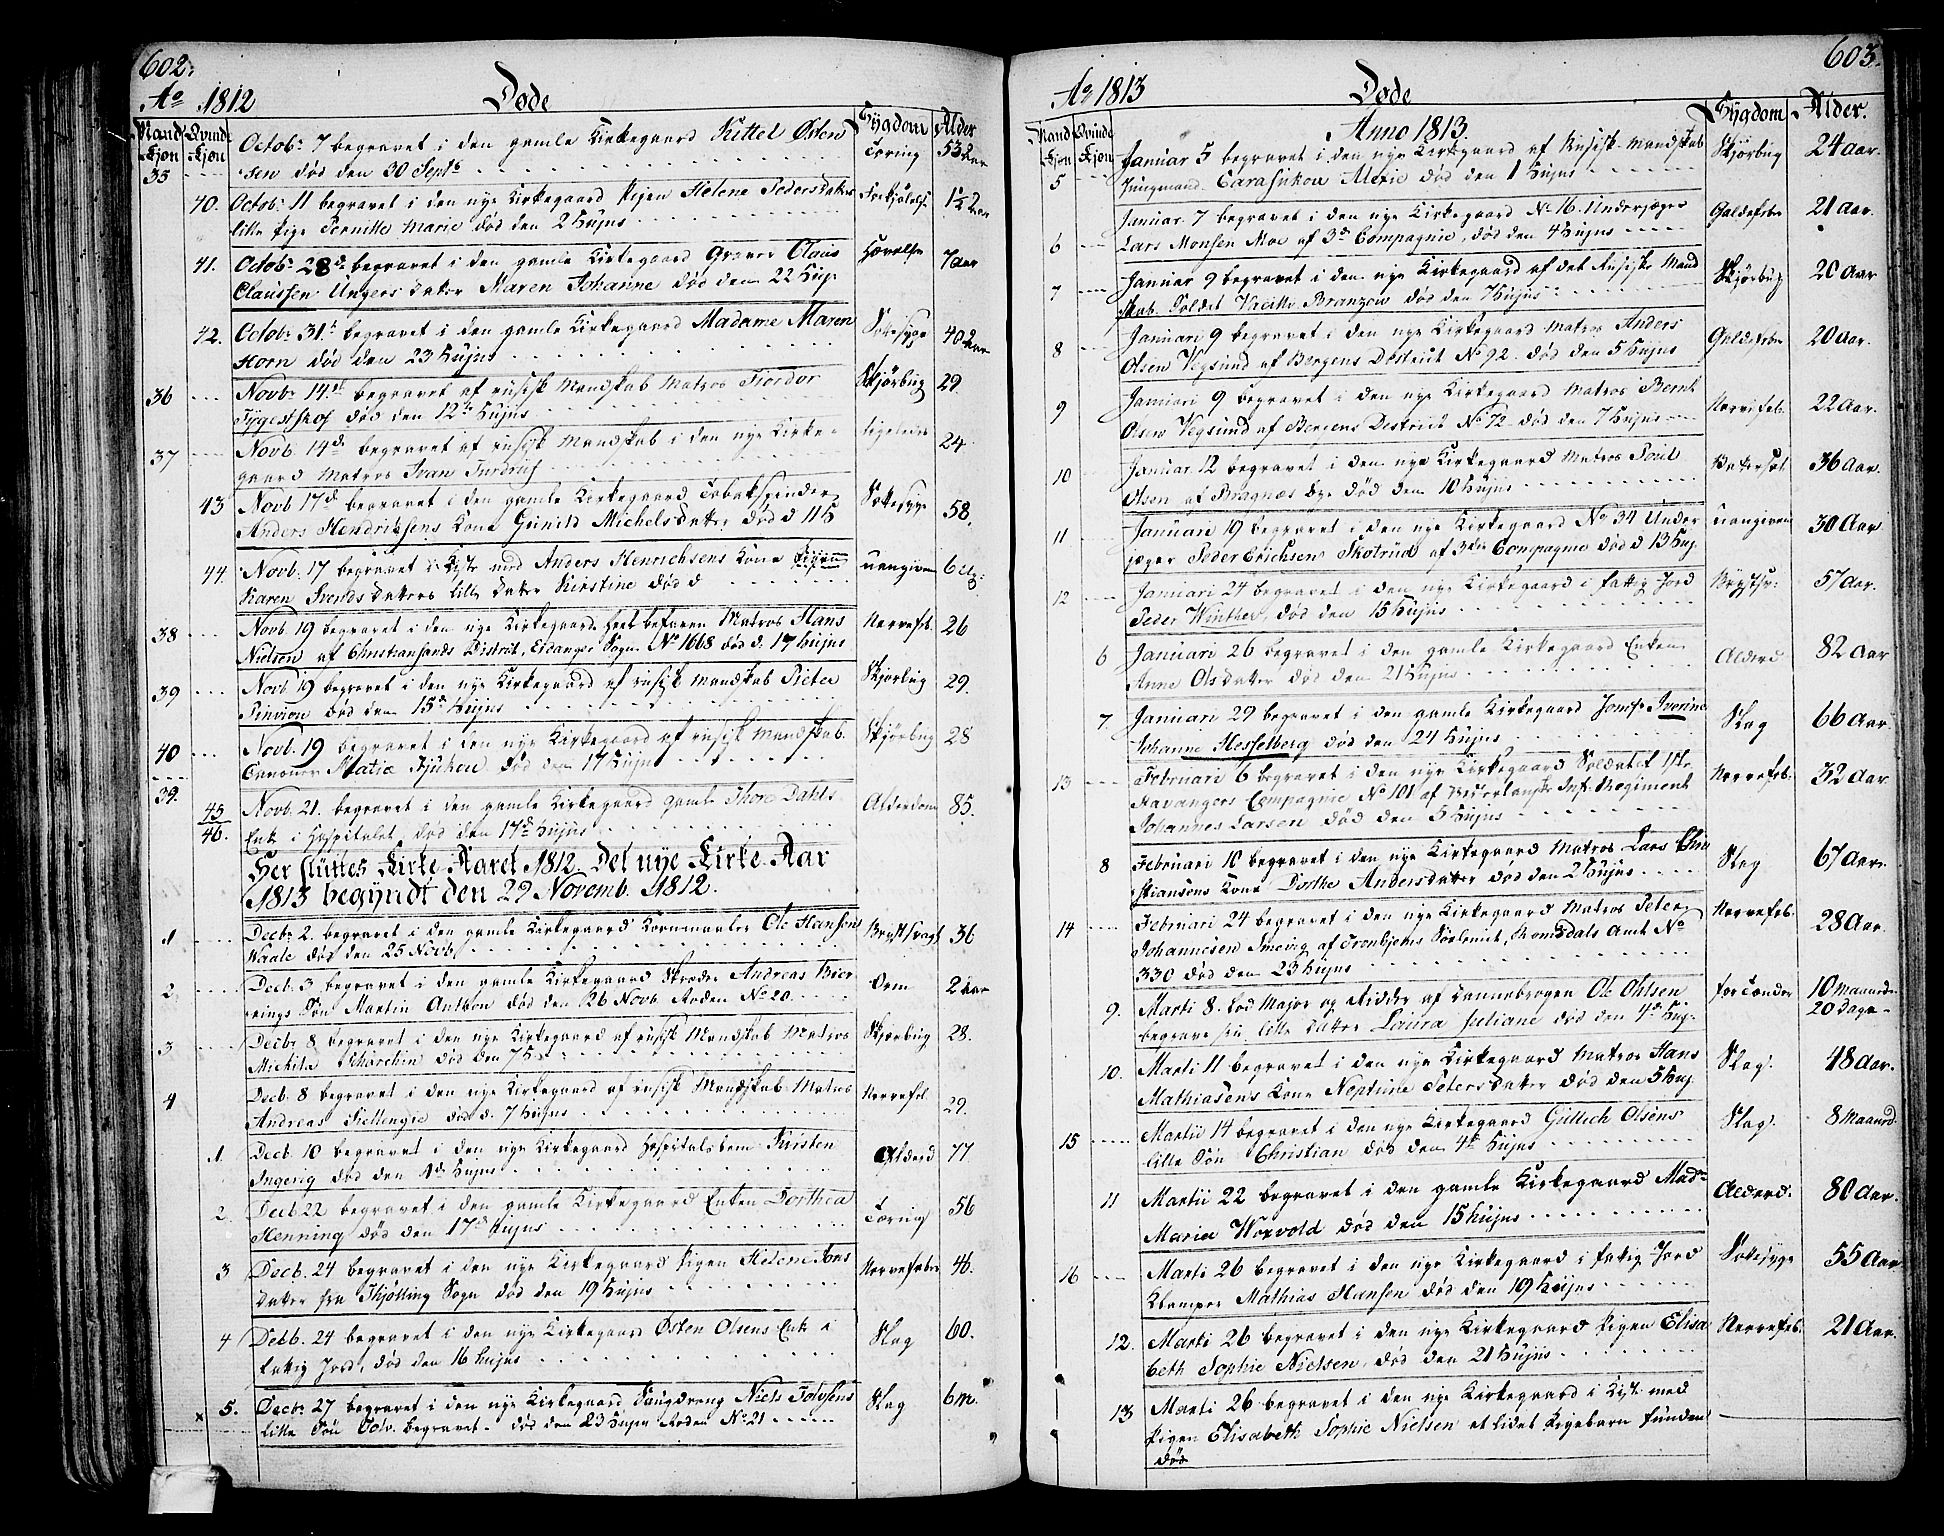 602.
Ao 1812 Døde
Mands Kjøn Qvinde Kjøn Sygdom Alder
Octobr 7 begravet i den gamle Kirkegaard Kittel Østen Tæring 53 aar
35 sen død den 30 Septbr
40. Octobr 11 begravet i den nye Kirkegaard Pigen Helene Pedersdatters 1½ aar
lille Pige Pernille Marie død den 2 hujus
41. Octobr 28de begravet i den gamle Kirkegaard Graver Claus Hævelse 7 aar
Claussen Ungers datter Maren Johanne død den 22 huj.
42. Octobr 31te begravet i den gamle Kirkegaard Madame Maren Sotesyge 40 aar
Horn død den 23 hujus
36 Novbr 14de begravet af rusisk Mandskab Matros Fiordor Skjørbug 29
død den 12te hujus
37 Novb. 14de begravet af rusisk Mandskab i den nye Kirke- ligeledes 24.
gaard Matros Ivan
43 Novb 17de begravet i den gamle Kirkegaard Tobakspinder Sotesyge 58.
Anders Hendriksens Kone Gunild Michelsdatter død d 11 h
44. Novb. 17 begravet i Kiste med Anders Henrichsens Kone Pigen uangiven 6 ug:
Karen Svendsdatters lille datter Kirstine død d
38 Novb 19 begravet i den nye Kirkegaard heel befaren Matros Hans Nervefeb. 26
Nielsen af Christiansands District, Eidanger Sogn No 1668 død d. 17 hujus
39 Novb 19 begravet i den nye Kirkegaard af rusisk Mandskab Pieter Skjørbug 29.
Pinvion død den 15de hujus
40 Novb. 19 begravet i den nye Kirkegaard af rusisk Mandskab Skjørbug 28
Canoner Matia død den 17 hujus
39. 45 Novb. 21. begravet i den gamle Kirkegaard gamle Thore Dahls Alderdom 85.
46. Enk i Hospitalet, død den 17de hujus
Her sluttes Kirke Aaret 1812. Det nye Kirke Aar
1813 begyndt den 29 Novemb. 1812.
1 Decbr 2. begravet i den gamle Kirkegaard Kornmaaler Ole Hansen Brystsvagh. 36
Waale død den 25 Novb.
2 Decb. 3 begravet i den gamle Kirkegaard Skræder Andreas Bier Orm 2 aar
rings Søn Martin Anthon død den 26 Novb. Roden No 20.
3 Decbr 8 begravet i den nye Kirkegaard af rusisk Mandskab Matros Skjørbug 28.
Michila Schorchin død den 7 h
4 Decb. 8 begravet i den nye Kirkegaard af rusisk Mandskab Matros Nervefeb. 29.
Andreas død d. 7 hujus
1. Decb. 10 begravet i den nye Kirkegaard Hospitalslem Kirsten Alderd 77
Ingerig død den hujus
2. Decb 22 begravet i den gamle Kirkegaard Enken Dorthea Tæring 56
Henning død den 17de hujus
3 Decb. 24 begravet i den nye Kirkegaard Pigen Helene Jens Nervefeber 46.
datter fra Thjølling Sogn død den 19 hujus
4 Decb. 24 begravet i den nye Kirkegaard Østen Olsens Enk i Slag 60.
fattig Jord, død den 16 hujus
x 5. Decbr 27 begravet i den nye Kirkegaard Niels Tolvsens Slag 6 m.
lille Søn Tolv. begravet. død den 23 hujus Roden No 21
603.
Ao 1813 Døde
Mand Kjøn Qvinde Kjøn Sygdom Alder.
Anno 1813.
Januar 5 begravet i den nye Kirkegaard af Rusisk Mandskab Skjørbug 24 aar.
5 Jungmand Alexie død den 1 hujus
Januar 7 begravet i den nye Kirkegaard No 16. Underjæger Galdefeber 21 aar.
6 Lars Monsen Moe af 3de Compagnie, død den 4 hujus
Januar 9 begravet i den nye Kirkegaard af det Rusiske Mand Skjørbug 20 aar
7 skab. Soldat Branzow død den 7 hujus
Januari 9 begravet i den nye Kirkegaard Matros Anders Galdefeber 20 aar.
8 Olsen Vegsund af Bergens District No 92. død den 5 hujus
Januari 9 begravet i den nye Kirkegaard Matros Bernt Nervefeb. 22 aar.
9 Olsen Vegsund af Bergens District No 72 død den 7 hujus
Januar 12 begravet i den nye Kirkegaard Matros Poul Vatersot 36 aar.
10 Olsen af Bragnæs Bye død den 10 hujus
Januari 19 begravet i den nye Kirkegaard No 34 Under uangiven 30 Aar
11 jæger Peder Erichsen Skotrud af 3die Compagnie død d 13 huj.
Januari 24 begravet i den nye Kirkegaard i fattig Jord Brystsv: 57 aar.
12 Peder Winther, død den 15 hujus
6 Januari 26 begravet i den gamle Kirkegaard Enken Alderd 82 aar
Anne Olsdatter død den 21 hujus
7 Januari 29 begravet i den gamle Kirkegaard Jomfr Iverine Slag 66 aar.
Johanne Hesselberg død den 24 hujus
Februari 6 begravet i den nye Kirkegaard Soldat af 1ste Nervefeb. 32 aar.
13 Stavangers Compagnie No 101 af Vesterlenske Inf. Regiment
Johannes Larsen død den 5 hujus
8 Februari 10 begravet i den nye Kirkegaard Matros Lars Chri Slag 67 aar.
stiansens Kone Dorthe Andersdatter død den 2 hujus
Februari 24 begravet i den nye Kirkegaard Matros Peter Nervefeb. 28 aar.
14 Johannesen af Tronhjems Sølemit, Romsdals Amt No
330 død den 23 hujus
9. Marti 8. lod Major og Ridder af Dannebrogen Ole Ohlsen for Tænder 10 maaneder
begrave sin lille datter Laura Juliane død den 4de huj. 20 dage
10. Marti 11 begravet i den nye Kirkegaard Matros Hans Slag. 48 aar.
Mathiasens Kone Neptine Petersdatter død den 5 huj.
Martii 14 begravet i den nye Kirkegaard Gullich Olsens Slag. 8 Maaned
15 lille Søn Christian død den 4de hujus
11 Martii 22 begravet i den gamle Kirkegaard Mad. Alderd. 80 aar.
Maria Worvold død den 15 hujus
Marti 26 begravet i den nye Kirkegaard i fattig Jord Sotesyge 55 aar
16 Klamper Mathias Hansen død den 19 hujus
12. Marti 26 begravet i den nye Kirkegaard Pigen Elisa Nervefeb. 21 aar.
beth Sophie Nielsen, død den 21 hujus
13 Marti 26 begravet i den nye Kirkegaard i Kist. med
Pigen Elisabeth Sophie Nielsen et lidet Pigebarn funden
død